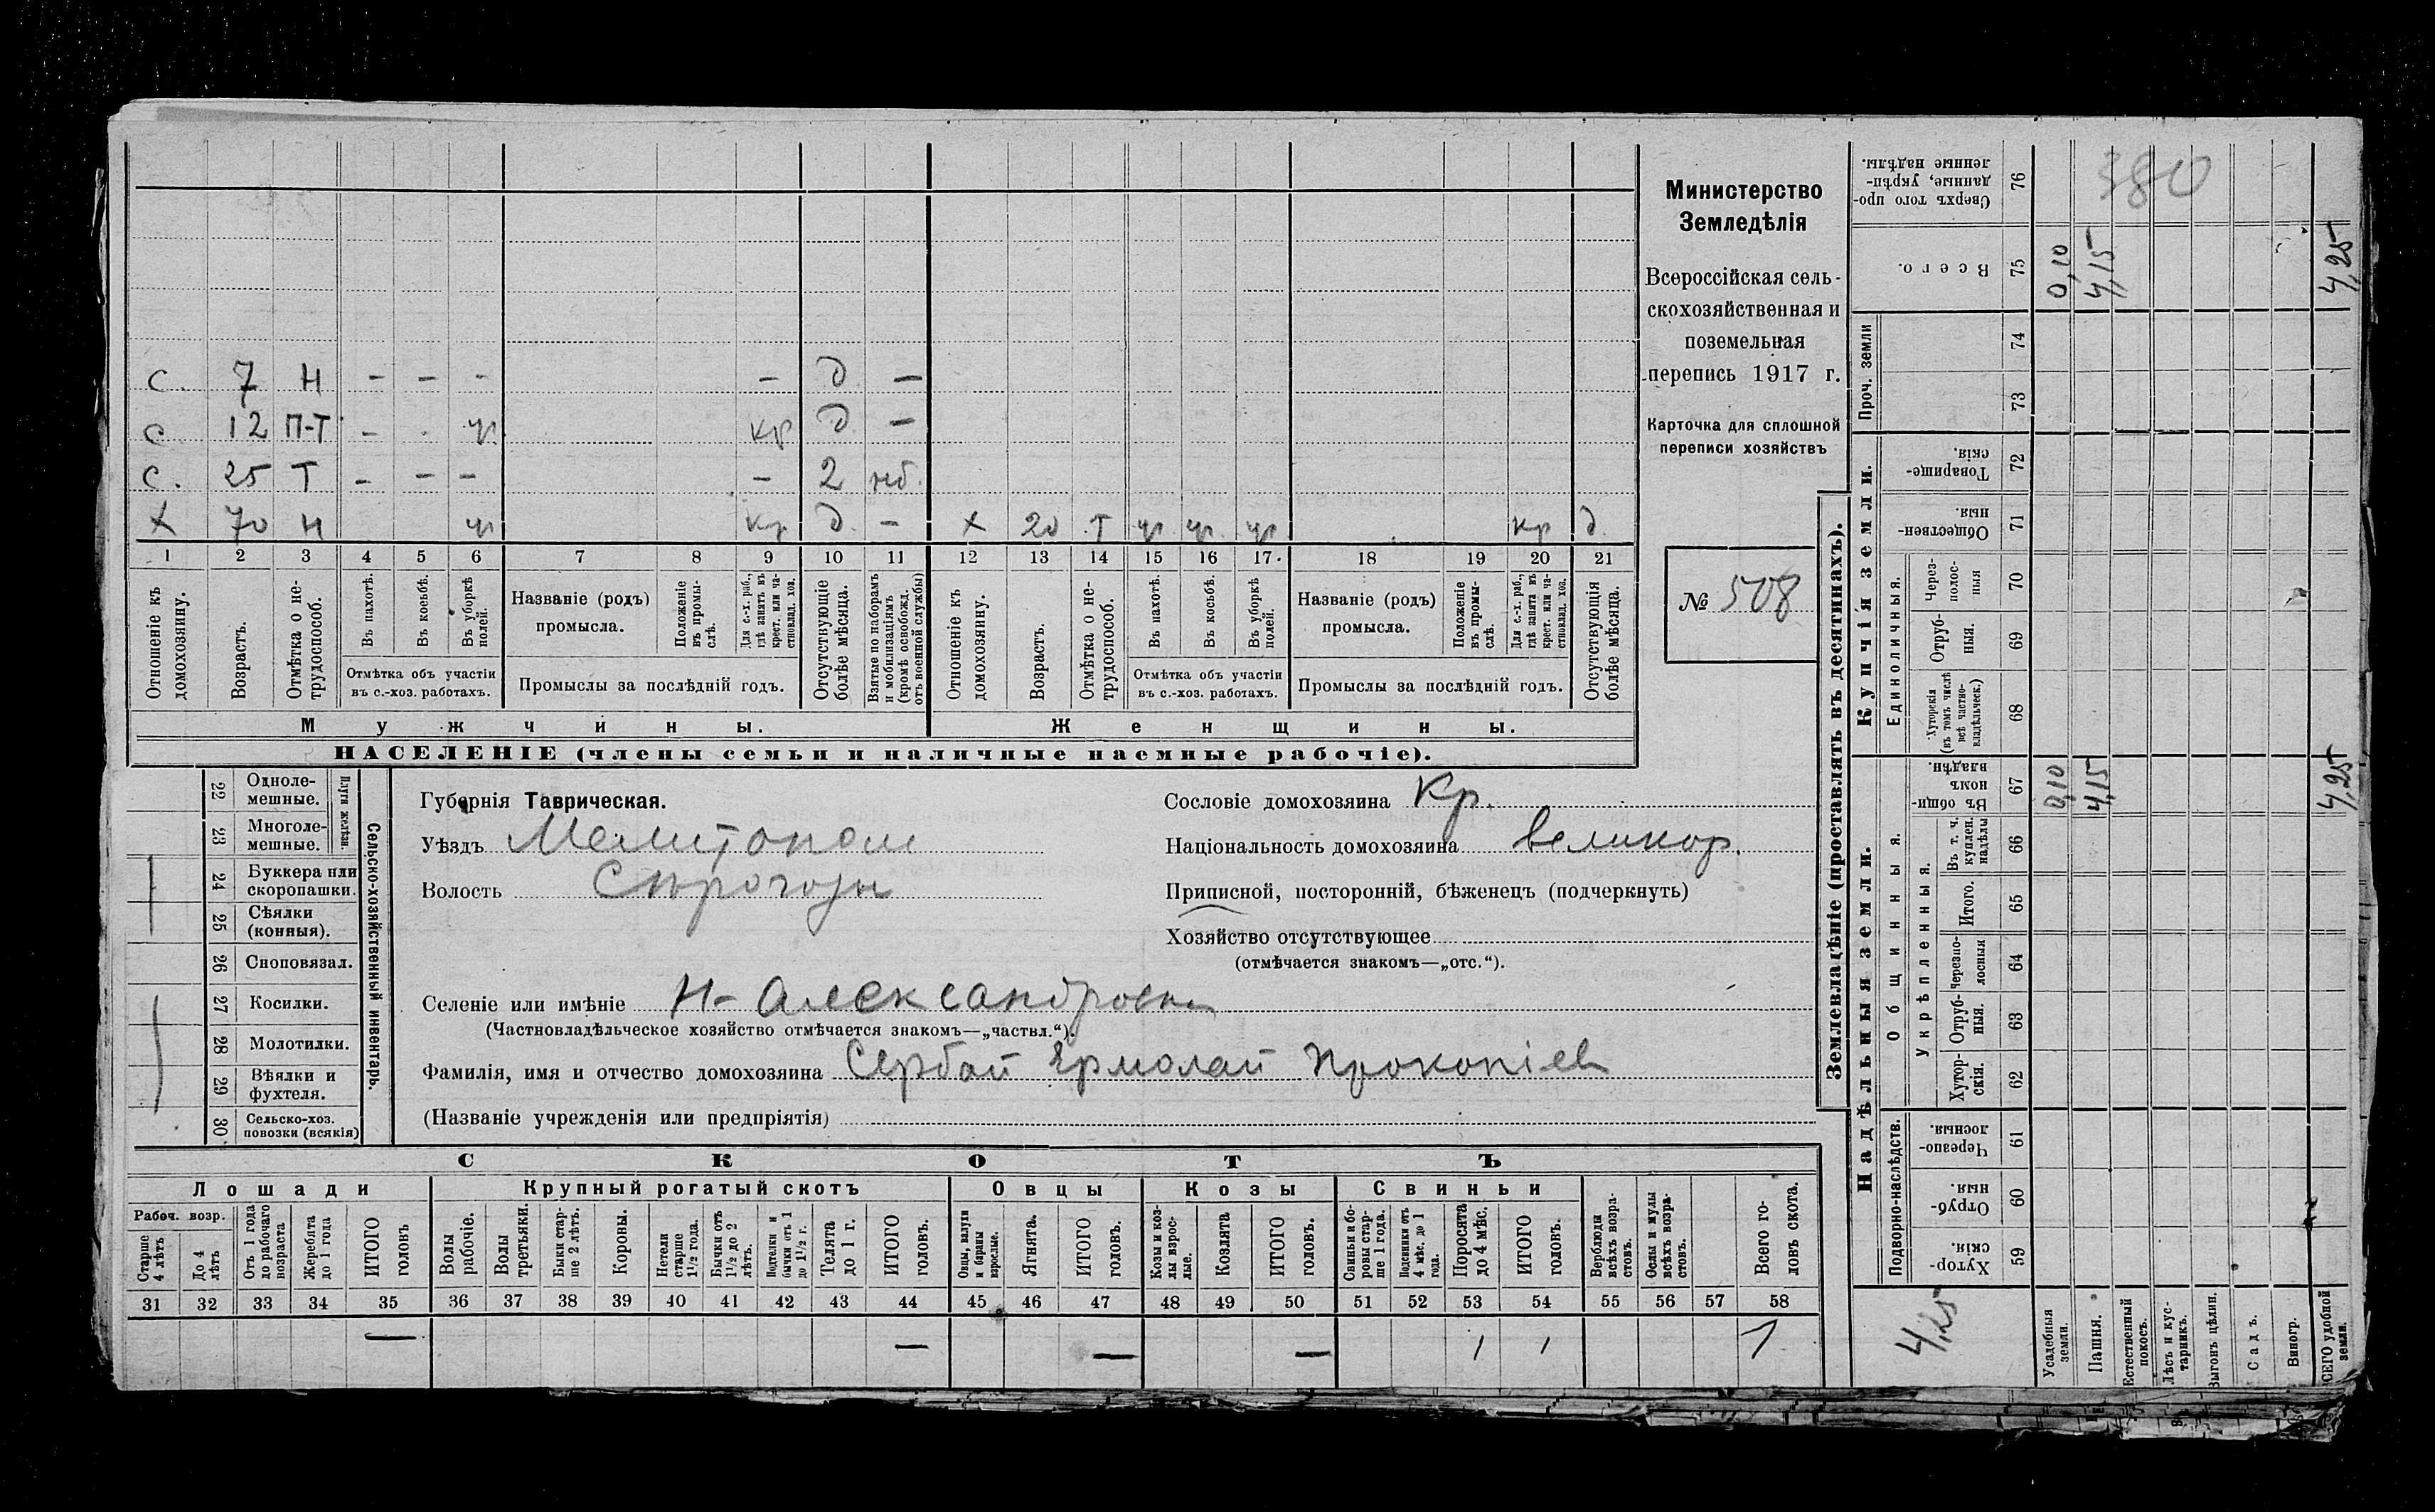 Министерство
Земледѣлія
Всероссійская сель-
скохозяйственная и
поземельная
перепись 1917 г.
Карточка для сплошной
переписи хозяйствъ
№ 508
с. 7 Н - - - - д -
с 12 П-Т - - уч кр д -
с. 25 Т - - - - 2 нб.
х 70 Н уч кр д - х 20 Т уч уч. уч кр д.
1 2 3 4 5 6 7 8 9 10 11 12 13 14 15 16 17. 18 19 20 21
Отношеніе къ домохозяину.
Возрастъ.
Отмѣтка о не-трудоспособ.
Въ пахотѣ.
Въ косьбѣ.
Въ уборкѣ полей.
Отмѣтка объ участіи
въ с.-хоз. работахъ.
Названіе (родъ)
промысла.
Положеніе въ промы-слѣ.
Для с.-х. раб., гдѣ занятъ въ крест. или ча-стновлад. хоз.
Промыслы за послѣдній годъ.
Отсутствующіе болѣе мѣсяца.
Взятые по наборамъ и мобилизаціямъ (кромѣ освобожд. отъ военной службы)
Отношеніе къ домохозяину.
Возрастъ.
Отмѣтка о не-трудоспособ.
Въ пахотѣ.
Въ косьбѣ.
Въ уборкѣ полей.
Отмѣтка объ участіи
въ с.-хоз. работахъ.
Названіе (родъ)
промысла.
Положеніе въ промы-слѣ.
Для с.-х. раб., гдѣ занята въ крест. или ча-стновлад. хоз.
Промыслы за послѣдній годъ.
Отсутствующія болѣе мѣсяца.
Мужчины. Женщины.
НАСЕЛЕНІЕ (члены семьи и наличные наемные рабочіе).
Сельско-хозяйственный инвентарь.
Плуги желѣзн.
22 Одноле-мешные.
23 Многоле-мешные.
24 Буккера или скоропашки.
25 Сѣялки (конныя).
26 Сноповязал.
27 Косилки.
28 Молотилки.
29 Вѣялки и фухтеля.
30 Сельско-хоз. повозки (всякія)
Губернія Таврическая.
Уѣздъ Мелитопол
Волость Сѣрогозы
Селеніе или имѣніе Н-Александровка
(Частновладѣльческое хозяйство отмѣчается знакомъ—„частвл.“).
Фамилія, имя и отчество домохозяина Сербай Ермолай Прокопіев
(Названіе учрежденія или предпріятія)
Сословіе домохозяина Кр.
Національность домохозяина великор.
Приписной, посторонній, бѣженецъ (подчеркнуть)
Хозяйство отсутствующее
(отмѣчается знакомъ—„отс.“).
СКОТЪ
Лошади Крупный рогатый скотъ Овцы Козы Свиньи
Рабоч. возр.
Старше 4 лѣтъ
До 4 лѣтъ
Отъ 1 года до рабочаго возраста
Жеребята до 1 года
ИТОГО головъ
Волы рабочіе.
Волы третьяки.
Быки стар-ше 2 лѣтъ.
Коровы.
Нетели старше 1 1/2 года.
Бычки отъ 1 1/2 до 2 лѣтъ.
Подтелки и бычки отъ 1 до 1 1/2 г.
Телята до 1 г.
ИТОГО головъ.
Овцы, валухи и бараны взрослые.
Ягнята.
ИТОГО головъ.
Козы и коз-лы взрос-лые.
Козлята
ИТОГО головъ.
Свиньи и бо-ровы стар-ше 1 года.
Подсвинки отъ 4 мѣс. до 1 года.
Поросята до 4 мѣс.
ИТОГО головъ.
Верблюды всѣхъ возра-стовъ.
Ослы и мулы всѣхъ возра-стовъ.
Всего го-ловъ скота.
31 32 33 34 35 36 37 38 39 40 41 42 43 44 45 46 47 48 49 50 51 52 53 54 55 56 57 58
— — — — 1 1 1
Землевладѣніе (проставлять въ десятинахъ).
Надѣльныя земли.
Купчія земли.
Проч. земли
Подворно-наслѣдств.
Общинныя.
Укрѣпленныя.
Единоличныя.
Хутор-скія. 59
Отруб-ныя. 60
Черезпо-лосныя. 61
Хутор-скія. 62
Отруб-ныя. 63
Черезпо-лосныя 64
Итого. 65
Въ т. ч. куплен. надѣлы 66
Въ общин-номъ владѣн. 67
Хуторскія (въ томъ числѣ всѣ частно-владѣльческ.) 68
Отруб-ныя. 69
Через-полос-ныя 70
Обществен-ныя. 71
Товарище-скія. 72
73
74
Всего. 75
Сверхъ того про-данные, укрѣп-ленные надѣлы. 76
380
4,25
Усадебныя земли. 0,10 0,10
Пашня. 4,15 4,15
Естественный покосъ.
Лѣсъ и кус-тарникъ.
Выгонъ цѣлин.
Садъ.
Виногр.
ВСЕГО удобной земли. 4,25 4,25